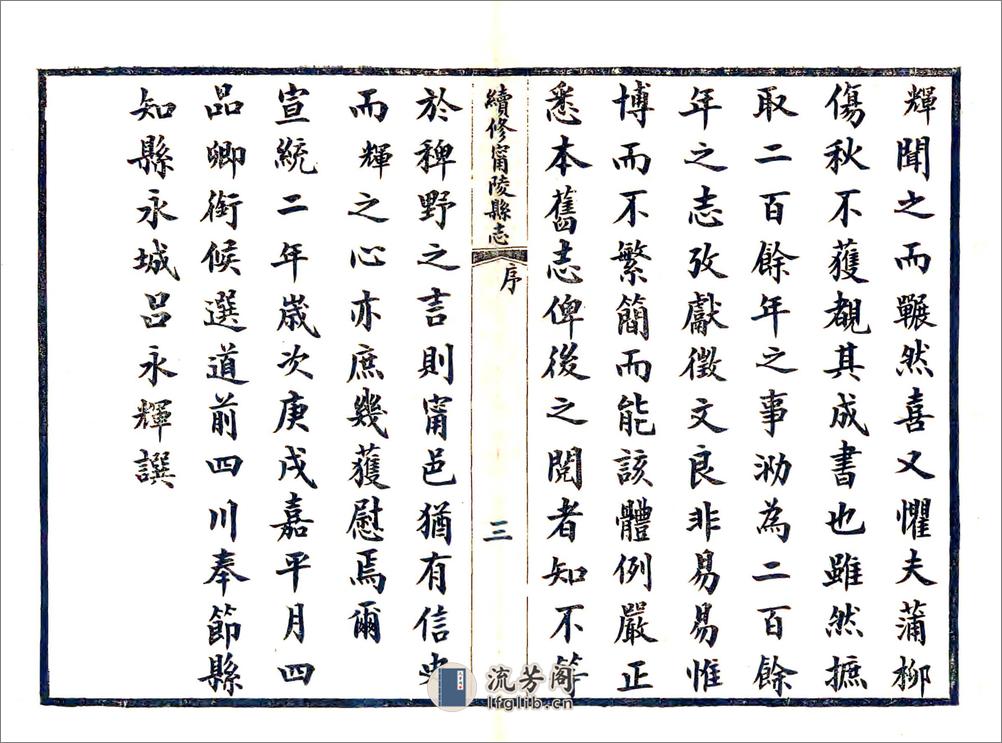 輝聞之而囅然喜又懼夫蒲柳
傷秋不獲覩其成書也雖然摭
取二百餘年之事泐為二百餘
年之志攷獻徵文良非易易惟
博而不繁簡而能該體例嚴正
悉本舊志俾後之閱者知不等
續修甯陵縣志
序
三
於稗野之言則甯邑猶有信史
而輝之心亦庶幾獲慰焉爾
宣統二年歲次庚戌嘉平月四
品卿銜候選道前四川奉節縣
知縣永城呂永輝譔
流芳阁
lfglib.cn